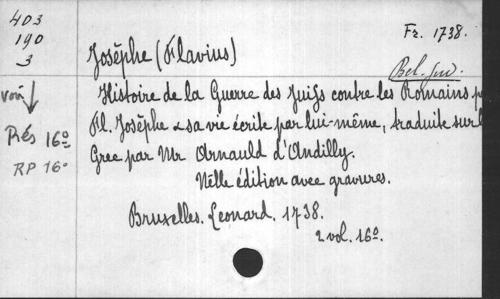 403
190
3
voir
Rés 16º
RP 16º
Fr. 1738.
Josèphe (Flavius)
Bel. Jud.
Histoire de la Guerre des Juifs contre les Romains p
Fl. Josèphe & sa vie écrite par lui-même, traduite sur l
Grec par Mr Arnauld d'Andilly.
Nlle édition avec gravures.
Bruxelles. Léonard. 1738.
2 vol. 16º.